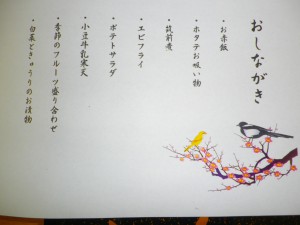 おしながき
・お赤飯
・ホタテお吸い物
・筑前煮
・エビフライ
・ポテトサラダ
・小豆牛乳寒天
・季節のフルーツ盛り合わせ
・白菜ときゅうりのお漬物